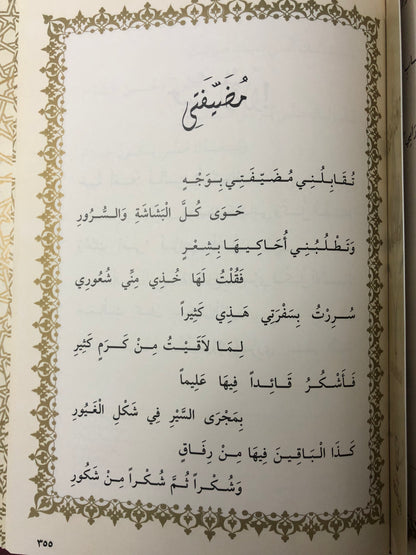 مُضَيِّفَتِي
تُقَابِلُنِي مُضَيِّفَتِي بِوَجْهٍ
حَوَى كُلَّ الْبَشَاشَةِ وَالسُّرُورِ
وَتَطْلُبُنِي أُحَاكِيهَا بِشِعْرٍ
فَقُلْتُ لَهَا خُذِي مِنِّي شُعُورِي
سُرِرْتُ بِسَفْرَتِي هَذِي كَثِيراً
لِمَا لاَقَيْتُ مِنْ كَرَمٍ كَثِيرِ
فَأَشْكُرُ قَائِداً فِيهَا عَلِيماً
بِمَجْرَى السَّيْرِ فِي شَكْلِ الْغَيُورِ
كَذَا الْبَاقِينَ فِيهَا مِنْ رِفَاقٍ
وَشُكْراً ثُمَّ شُكْراً مِنْ شَكُورِ
٣٥٥